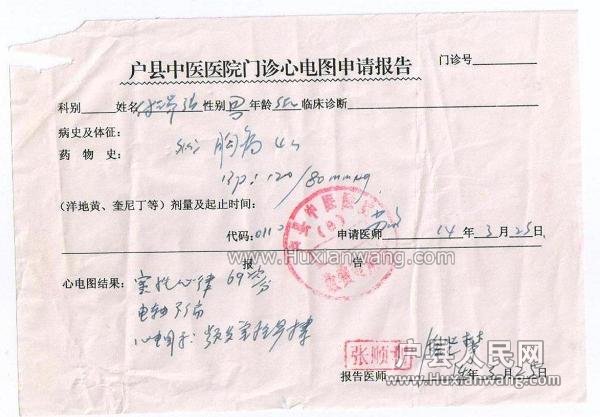 户县中医医院门诊心电图申请报告
门诊号
科别 姓名 性别 男 年龄 临床诊断
病史及体征：
药物史： 胸痛
BP：120/80mmHg
（洋地黄、奎尼丁等）剂量及起止时间：
代码：0110 申请医师 14年3月25日
报告
心电图结果：窦性心律 69次/分
电轴不偏
心电图示：频发室性早搏
张顺
报告医师 14年3月25日
户县中医医院
www.Huxianwang.com
户县人民网
www.Huxianwang.com